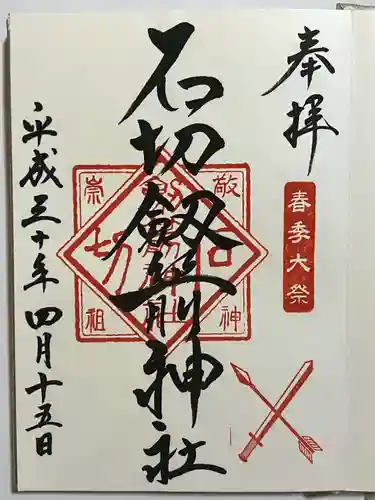 奉拝
春季大祭
石切劔箭神社
敬神
崇祖
石切
平成三十年四月十五日